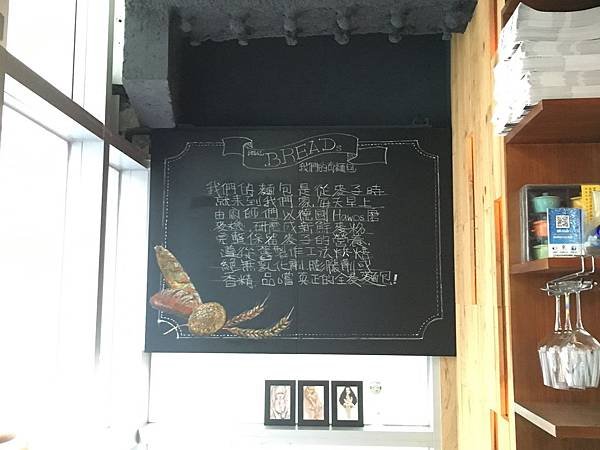 BREADs
我們的麵包
我們的麵包是從麥子時
就來到我們家,每天早上
由廚師們以德國Hawos磨
麥機,研磨成新鮮麥粉
完整保留麥子的營養,
遵從舊製作工法烘焙
絕無乳化劑,膨脹劑或
香精,品嚐真正的全麥麵包!